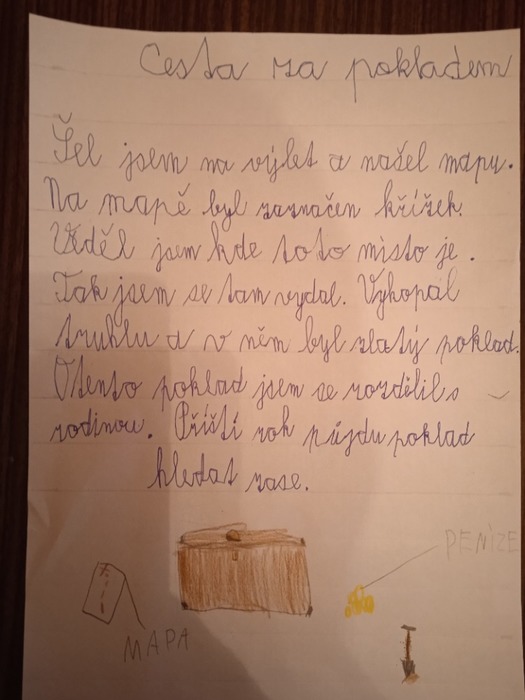 Cesta za pokladem
Šel jsem na výlet a našel mapu.
Na mapě byl zaznačen křížek.
Věděl jsem kde toto místo je.
Tak jsem se tam vydal. Vykopal
truhlu a v něm byl zlatý poklad.
O tento poklad jsem se rozdělil s
rodinou. Příští rok půjdu poklad
hledat zase.
PENÍZE
MAPA